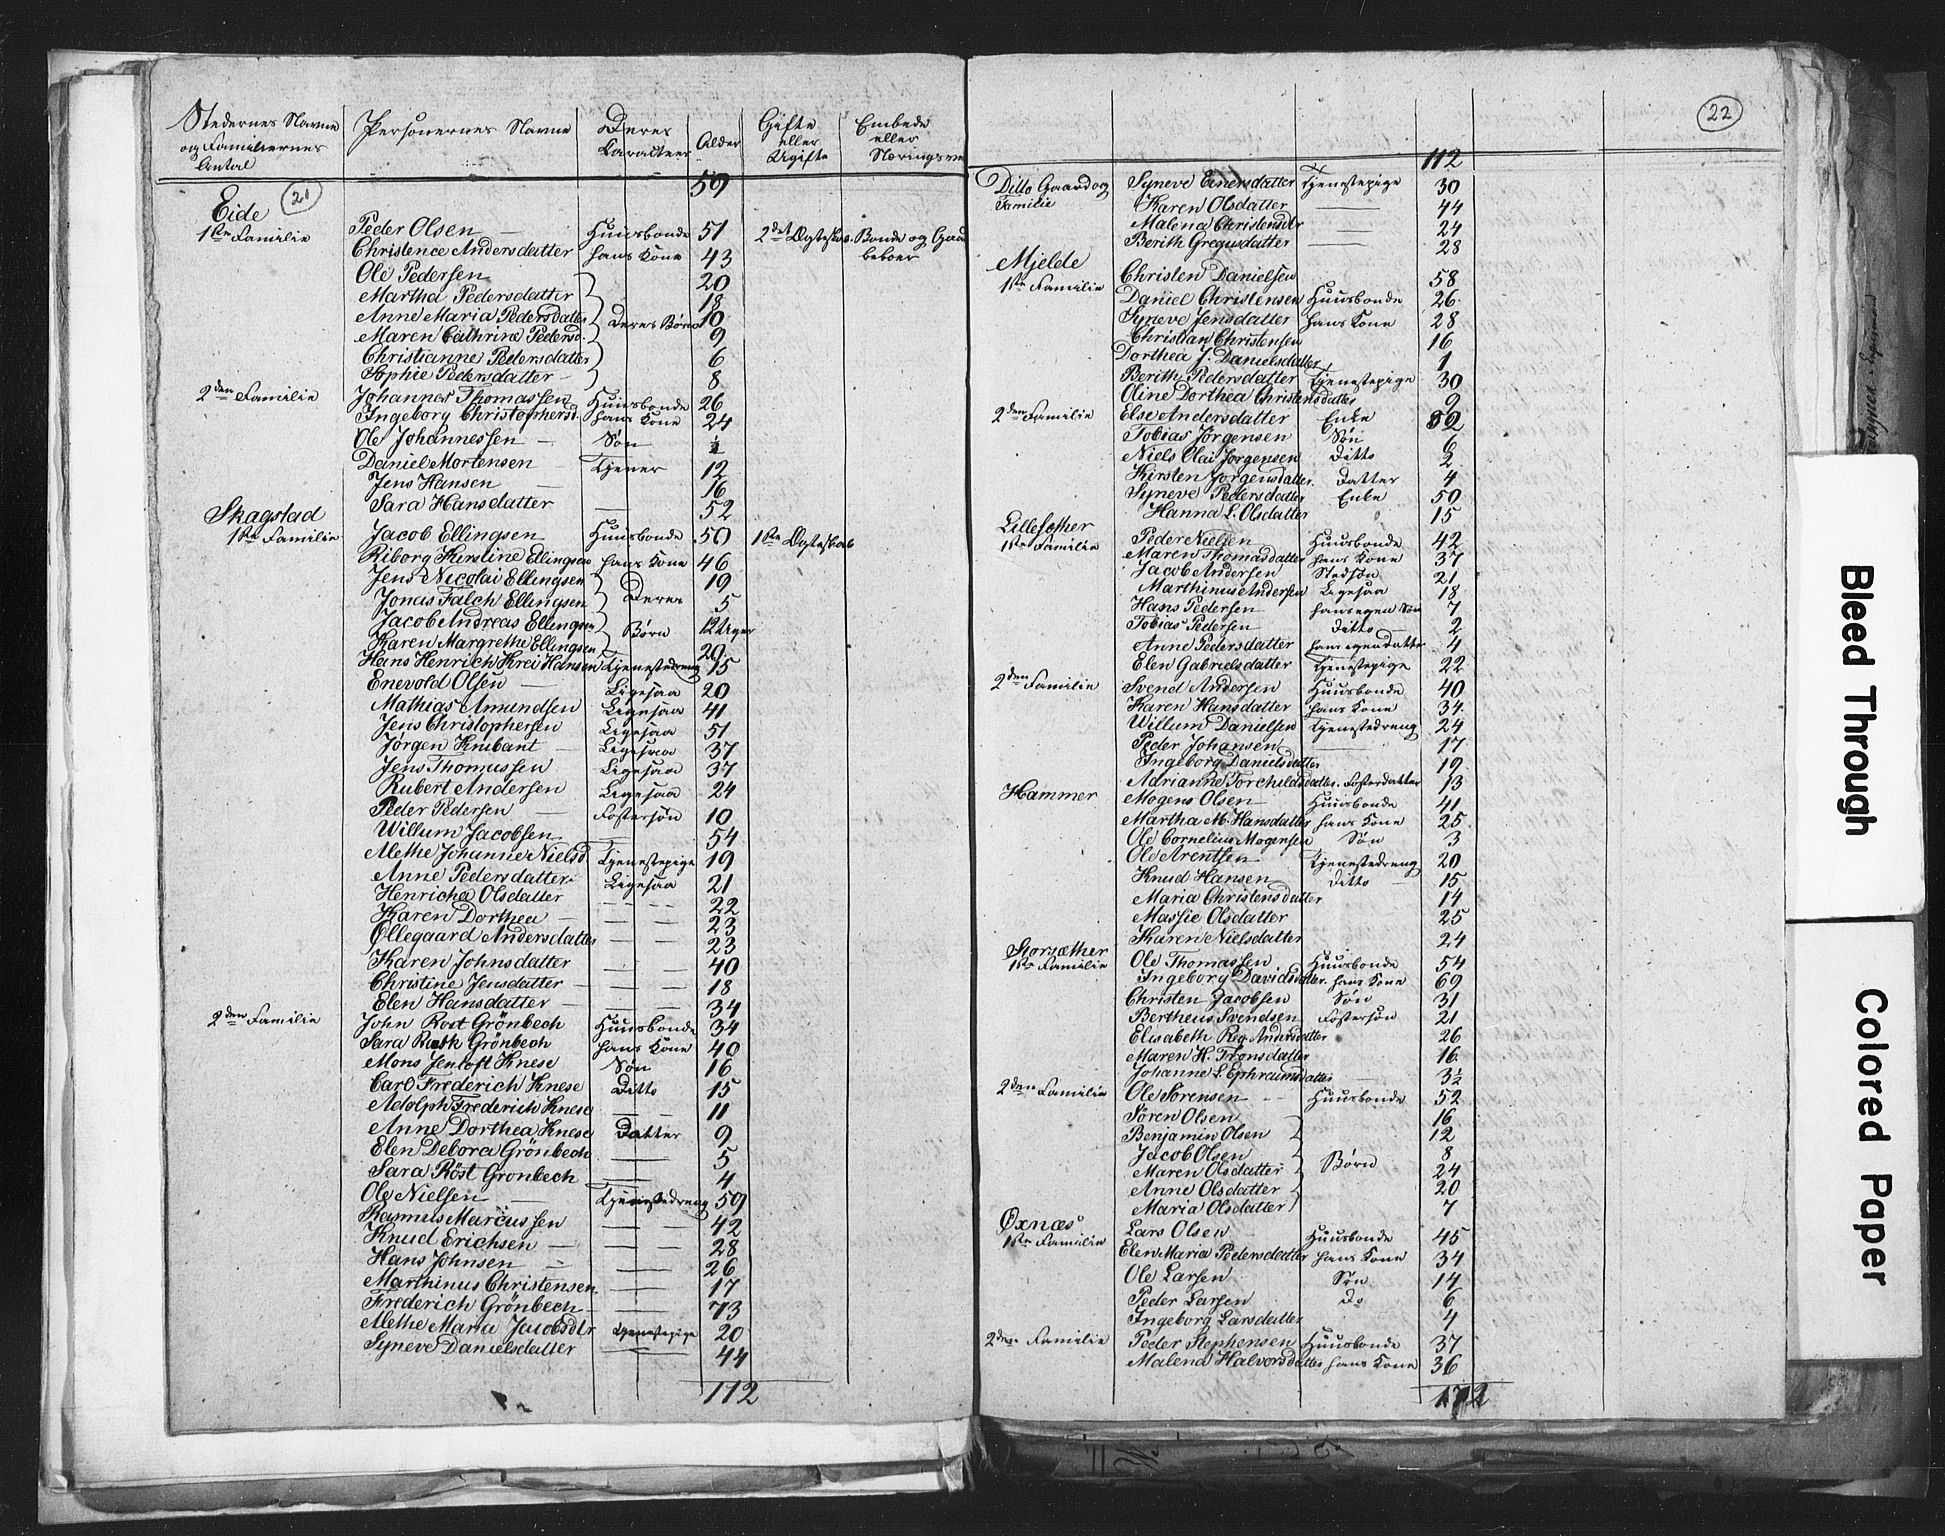 Stedernes Navne og Familiernes Antal | Personernes Navne | Deres Caracteer | Alder | Gifte eller Ugifte | Embede eller Næringsve
59
21
Eide
1ste Familie Peder Olsen — Huusbonde 51 2det Ægteskab. Bonde og Gaa
beboer
Christence Andersdatter hans Kone 43
Ole Pedersen 20
Martha Pedersdatter 18
Anne Maria Pedersdatter Deres Børn 10
Maren Cathrine Pedersd. 9
Christianne Pedersdatter 6
Sophie Pedersdatter — 8
2den Familie Johannes Thomassen Huusbonde 26
Ingeborg Christophersd. hans Kone 24
Ole Johannessen — Søn ½
Daniel Mortensen — Tjener 12
Jens Hansen — 16
Sara Hansdatter — 52
Skagstad
1ste Familie Jacob Ellingsen Huusbonde 50 1ste Ægteskab
Riborg Kirstine Ellingsen hans Kone 46
Jens Nicolai Ellingsen 19
Jonas Falch Ellingsen Deres 5
Jacob Andreas Ellingsen Børn 12 Uger
Karen Margrethe Ellingsen 20
Hans Henrich Krei Hansen Tjenestedreng 15
Enevold Olsen — Ligesaa 20
Mathias Amundsen Ligesaa 41
Jens Christophersen Ligesaa 51
Jørgen Knubant — Ligesaa 37
Jens Thomassen Ligesaa 37
Rubert Andersen Ligesaa 24
Peder Pedersen — Fostersøn 10
Willum Jacobsen — 54
Alethe Johanne Nielsd. Tjenestepige 19
Anne Pedersdatter Ligesaa 21
Henricha Olsdatter — — 22
Karen Dorthea — — — 23
Ollegaard Andersdatter — — 23
Karen Johnsdatter — — 40
Christine Jensdatter — — — 18
Elen Hansdatter — — — 34
2den Familie John Rost Grönbech Huusbonde 34
Sara Grönbech hans Kone 40
Mons Jentoft Knese Søn 16
Carl Frederich Knese Ditto 15
Adolph Frederich Knese — — 11
Anne Dorthea Knese Datter 9
Elen Debora Grönbech — 5
Sara Röst Gronbech — 4
Ole Nielsen — Tjenestedreng 59
Rasmus Marcussen — — 42
Knud Erichsen — — — 28
Hans Johnsen — — 26
Marthinus Christensen — 17
Frederich Grönbech — — 73
Alethe Maria Jacobsdtr Tjenestepige 20
Syneve Danielsdatter — 44
112
22
112
Ditto Gaard og Familie Syneve Einersdatter Tjenestepige 30
Karen Olsdatter — 44
Malena Christensdtr — 24
Berith Gregusdatter — 28
Mjelde
1ste Familie Christen Danielsen 58
Daniel Christensen Huusbonde 26
Syneve Jensdatter hans Kone 28
Christian Christensen 16
Dorthea J. Danielsdatter 1
Berith Pedersdatter Tjenestepige 30
Oline Dorthea Christensdatter 9
2den Familie Else Andersdatter Enke 52
Tobias Jørgensen Søn 6
Niels Olai Jorgensen Ditto 2
Kirsten Jorgensdatter. Datter 4
Syneve Pedersdatter Enke 50
Hanna L. Olsdatter 15
Lillesæther
1ste Familie Peder Nielsen Huusbonde 42
Maren Thomasdatter hans Kone 37
Jacob Andersen Stedsøn 21
Marthinus Andersen Ligesaa 18
Hans Pedersen hans egen Søn 7
Tobias Pedersen Ditto 2
Anne Pedersdatter hans egen datter 4
Elen Gabrielsdatter Tjenestepige 22
2den Familie Svend Andersen Huusbonde 40
Karen Hansdatter hans Kone 34
Willum Danielsen Tjenestedreng 24
Peder Johansen 17
Ingeborg Danielsdatter 19
Adrianne Torchildsdatter. Fosterdatter 13
Hammer Mogens Olsen — Huusbonde 41
Martha M. Hansdatter hans Kone 25
Ole Cornelius Mogensen Søn 3
Ole Arentsen Tjenestedreng 20
Knud Hansen — Ditto 15
Maria Christensdatter 14
Massie Olsdatter 25
Karen Nielsdatter 24
Storsæther
1ste Familie Ole Thomassen Huusbonde 54
Ingeborg Davidsdatter. hans Kone 69
Christen Jacobsen Søn 31
Bertheus Svendsen Fostersøn 21
Elisabeth Reg. Andersdatter 26
Maren H. Tronsdatter 16
Johanne L. Ephraimsdatter 3½
2den Familie Ole Sørensen — Huusbonde 52
Søren Olsen 16
Benjamin Olsen 12
Jacob Olsen 8
Maren Olsdatter Børn 24
Anne Olsdatter 20
Maria Olsdatter 7
Øxnæs
1ste Familie Lars Olsen — Huusbonde 45
Elen Maria Pedersdatter hans Kone 34
Ole Larsen Søn 14
Peder Larsen Do 6
Ingeborg Larsdatter 4
2den Familie Peder Stephensen Huusbonde 37
Malena Halvorsdatter hans Kone 36
172
Bleed Through
Colored Paper